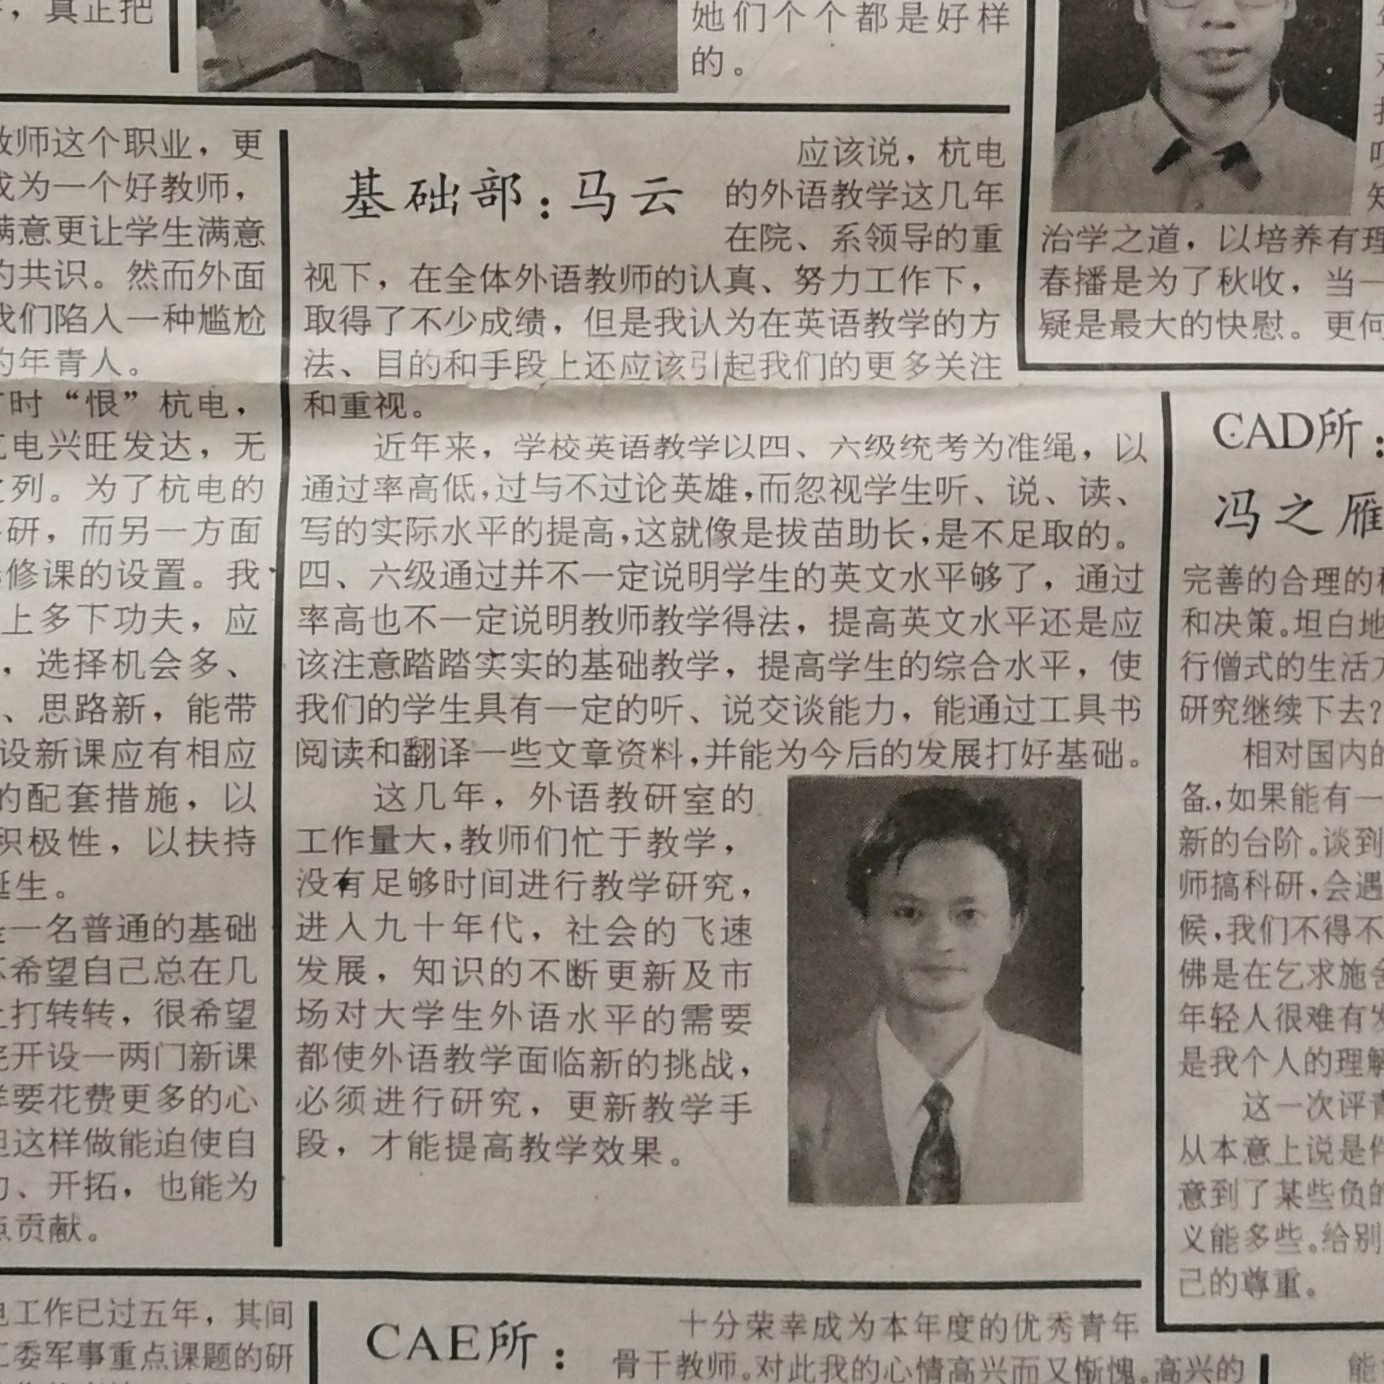 ，真正把
她们个个都是好样
的。
教师这个职业，更
成为一个好教师，
满意更让学生满意
的共识。然而外面
我们陷入一种尴尬
的年青人。
时“恨”杭电，
电兴旺发达，无
之列。为了杭电的
研，而另一方面
修课的设置。我
上多下功夫，应
，选择机会多、
、思路新，能带
设新课应有相应
的配套措施，以
积极性，以扶持
诞生。
是一名普通的基础
不希望自己总在几
上打转转，很希望
院开设一两门新课
样要花费更多的心
但这样做能迫使自
、开拓，也能为
点贡献。
基础部：马云
应该说，杭电
的外语教学这几年
在院、系领导的重
视下，在全体外语教师的认真、努力工作下，
取得了不少成绩，但是我认为在英语教学的方
法、目的和手段上还应该引起我们的更多关注
和重视。
近年来，学校英语教学以四、六级统考为准绳，以
通过率高低，过与不过论英雄，而忽视学生听、说、读、
写的实际水平的提高，这就像是拔苗助长，是不足取的。
四、六级通过并不一定说明学生的英文水平够了，通过
率高也不一定说明教师教学得法，提高英文水平还是应
该注意踏踏实实的基础教学，提高学生的综合水平，使
我们的学生具有一定的听、说交谈能力，能通过工具书
阅读和翻译一些文章资料，并能为今后的发展打好基础。
这几年，外语教研室的
工作量大，教师们忙于教学，
没有足够时间进行教学研究，
进入九十年代，社会的飞速
发展，知识的不断更新及市
场对大学生外语水平的需要
都使外语教学面临新的挑战，
必须进行研究，更新教学手
段，才能提高教学效果。
治学之道，以培养有理
春播是为了秋收，当一
疑是最大的快慰。更何
CAD所：
冯之雁
完善的合理的
和决策。坦白地
行僧式的生活方
研究继续下去？
相对国内的
备，如果能有一
新的台阶。谈到
师搞科研，会遇
候，我们不得不
佛是在乞求施舍
年轻人很难有发
是我个人的理解
这一次评青
从本意上说是件
意到了某些负的
义能多些。给别
己的尊重。
电工作已过五年，其间
工委军事重点课题的研
CAE所：
十分荣幸成为本年度的优秀青年
骨干教师。对此我的心情高兴而又惭愧。高兴的
能